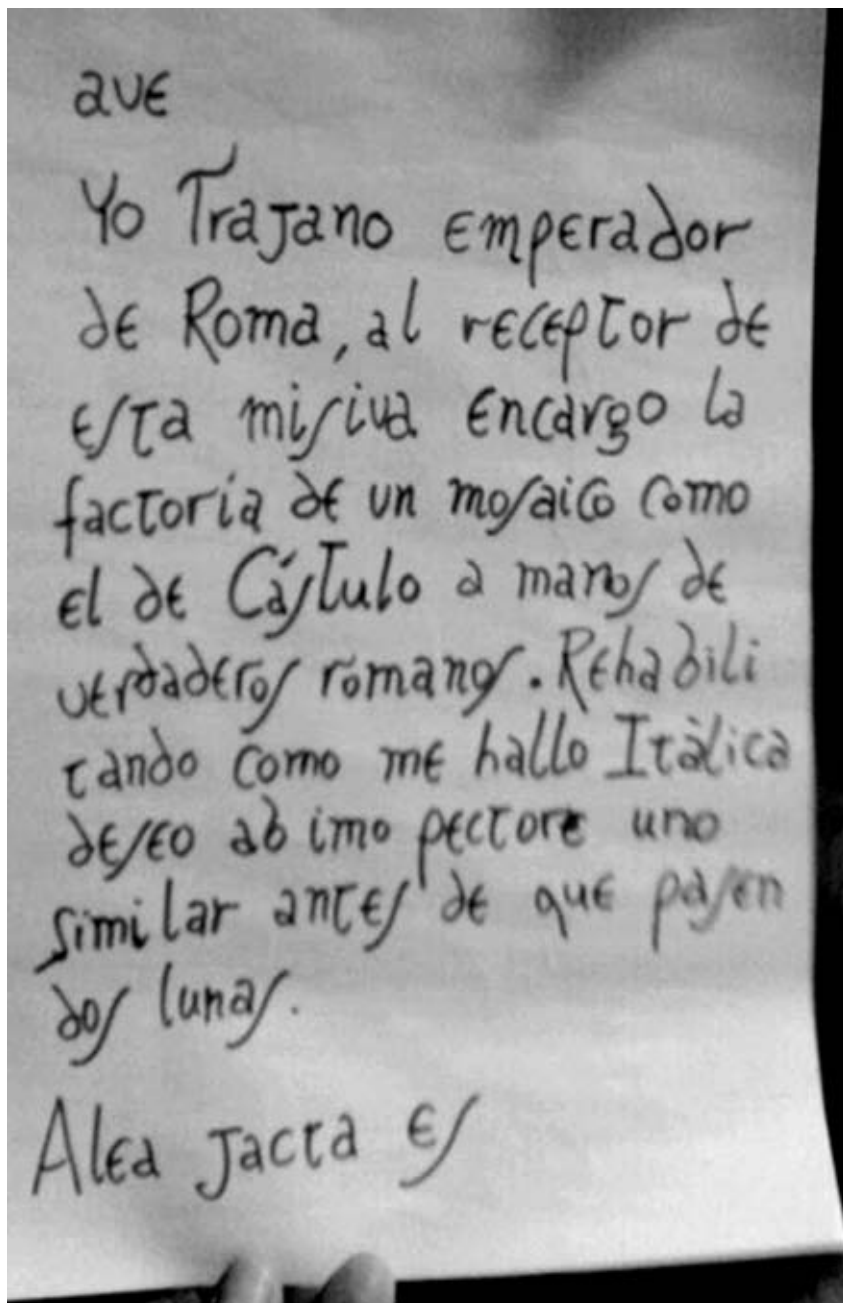 ave
Yo Trajano emperador
de Roma, al receptor de
esta misiva encargo la
factoría de un mosaico como
el de Cástulo a manos de
verdaderos romanos. Rehabili
tando como me hallo Itàlica
deseo ab imo pectore uno
similar antes de que pasen
dos lunas.
Alea Jacta es